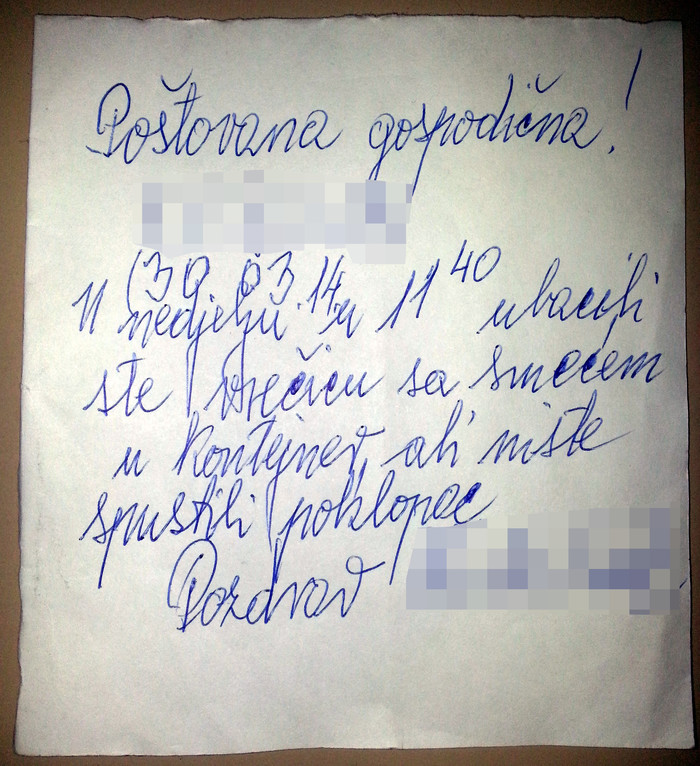 Poštovana gospodična!
(30 03 14
U nedjelju u 11 40 ubacili
ste vrećicu sa smećem
u kontejner ali niste
spustili poklopac
Pozdrav